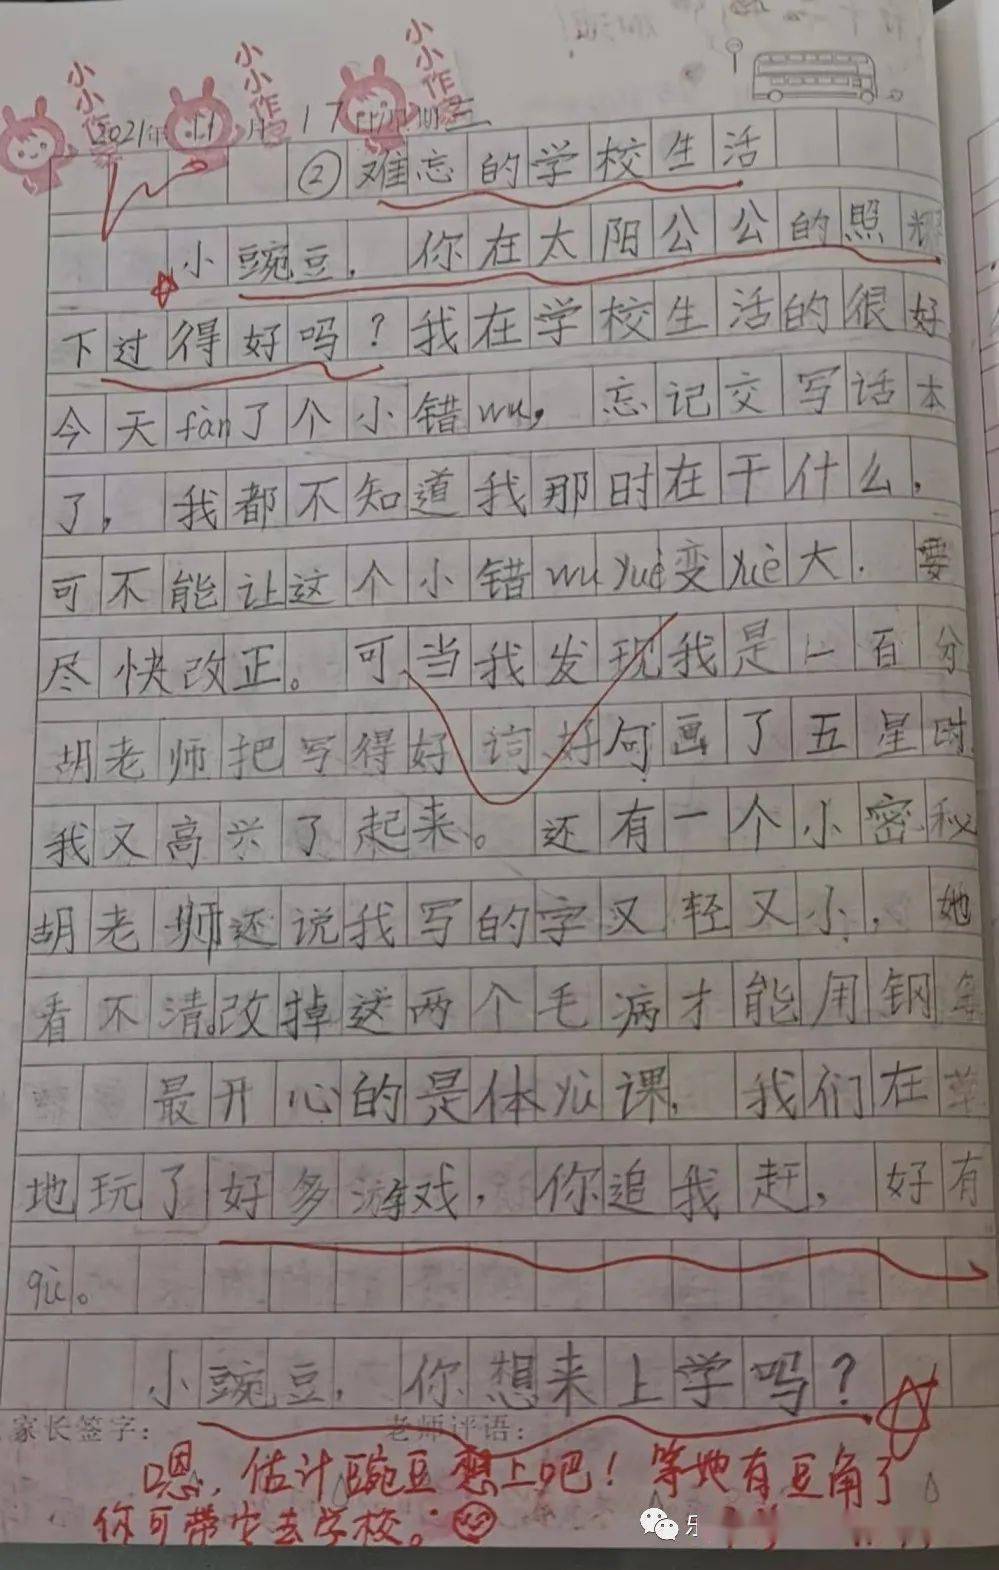 小小作
小小作
小小作
2021年11月17日 星期三
②难忘的学校生活
小豌豆，你在太阳公公的照耀
下过得好吗？我在学校生活的很好
今天fàn了个小错wu，忘记交写话本
了，我都不知道我那时在干什么，
可不能让这个小错wu yuè变yuè大．要
尽快改正。可、当我发现我是一百分
胡老师把写得好词、好句画了五星时
我又高兴了起来。还有一个小密秘
胡老师还说我写的字又轻又小，她
看不清。改掉这两个毛病才能用钢笔
最开心的是体yù课，我们在草
地玩了好多游戏，你追我赶，好有
qù。
小豌豆，你想来上学吗？
家长签字：
老师评语：
嗯，估计豌豆想上吧！等她有豆角了
你可带它去学校。